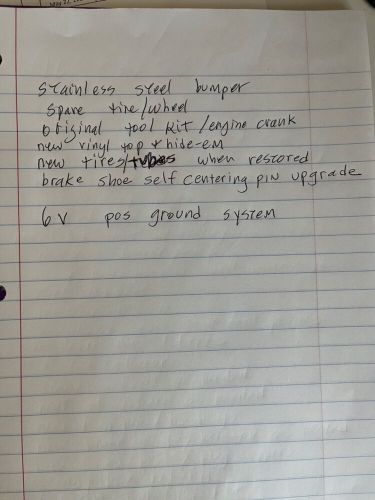 stainless steel bumper
spare tire/wheel
original tool kit/engine crank
new vinyl top + hide-em
new tires/tubes when restored
brake shoe self centering pin upgrade
6v pos ground system